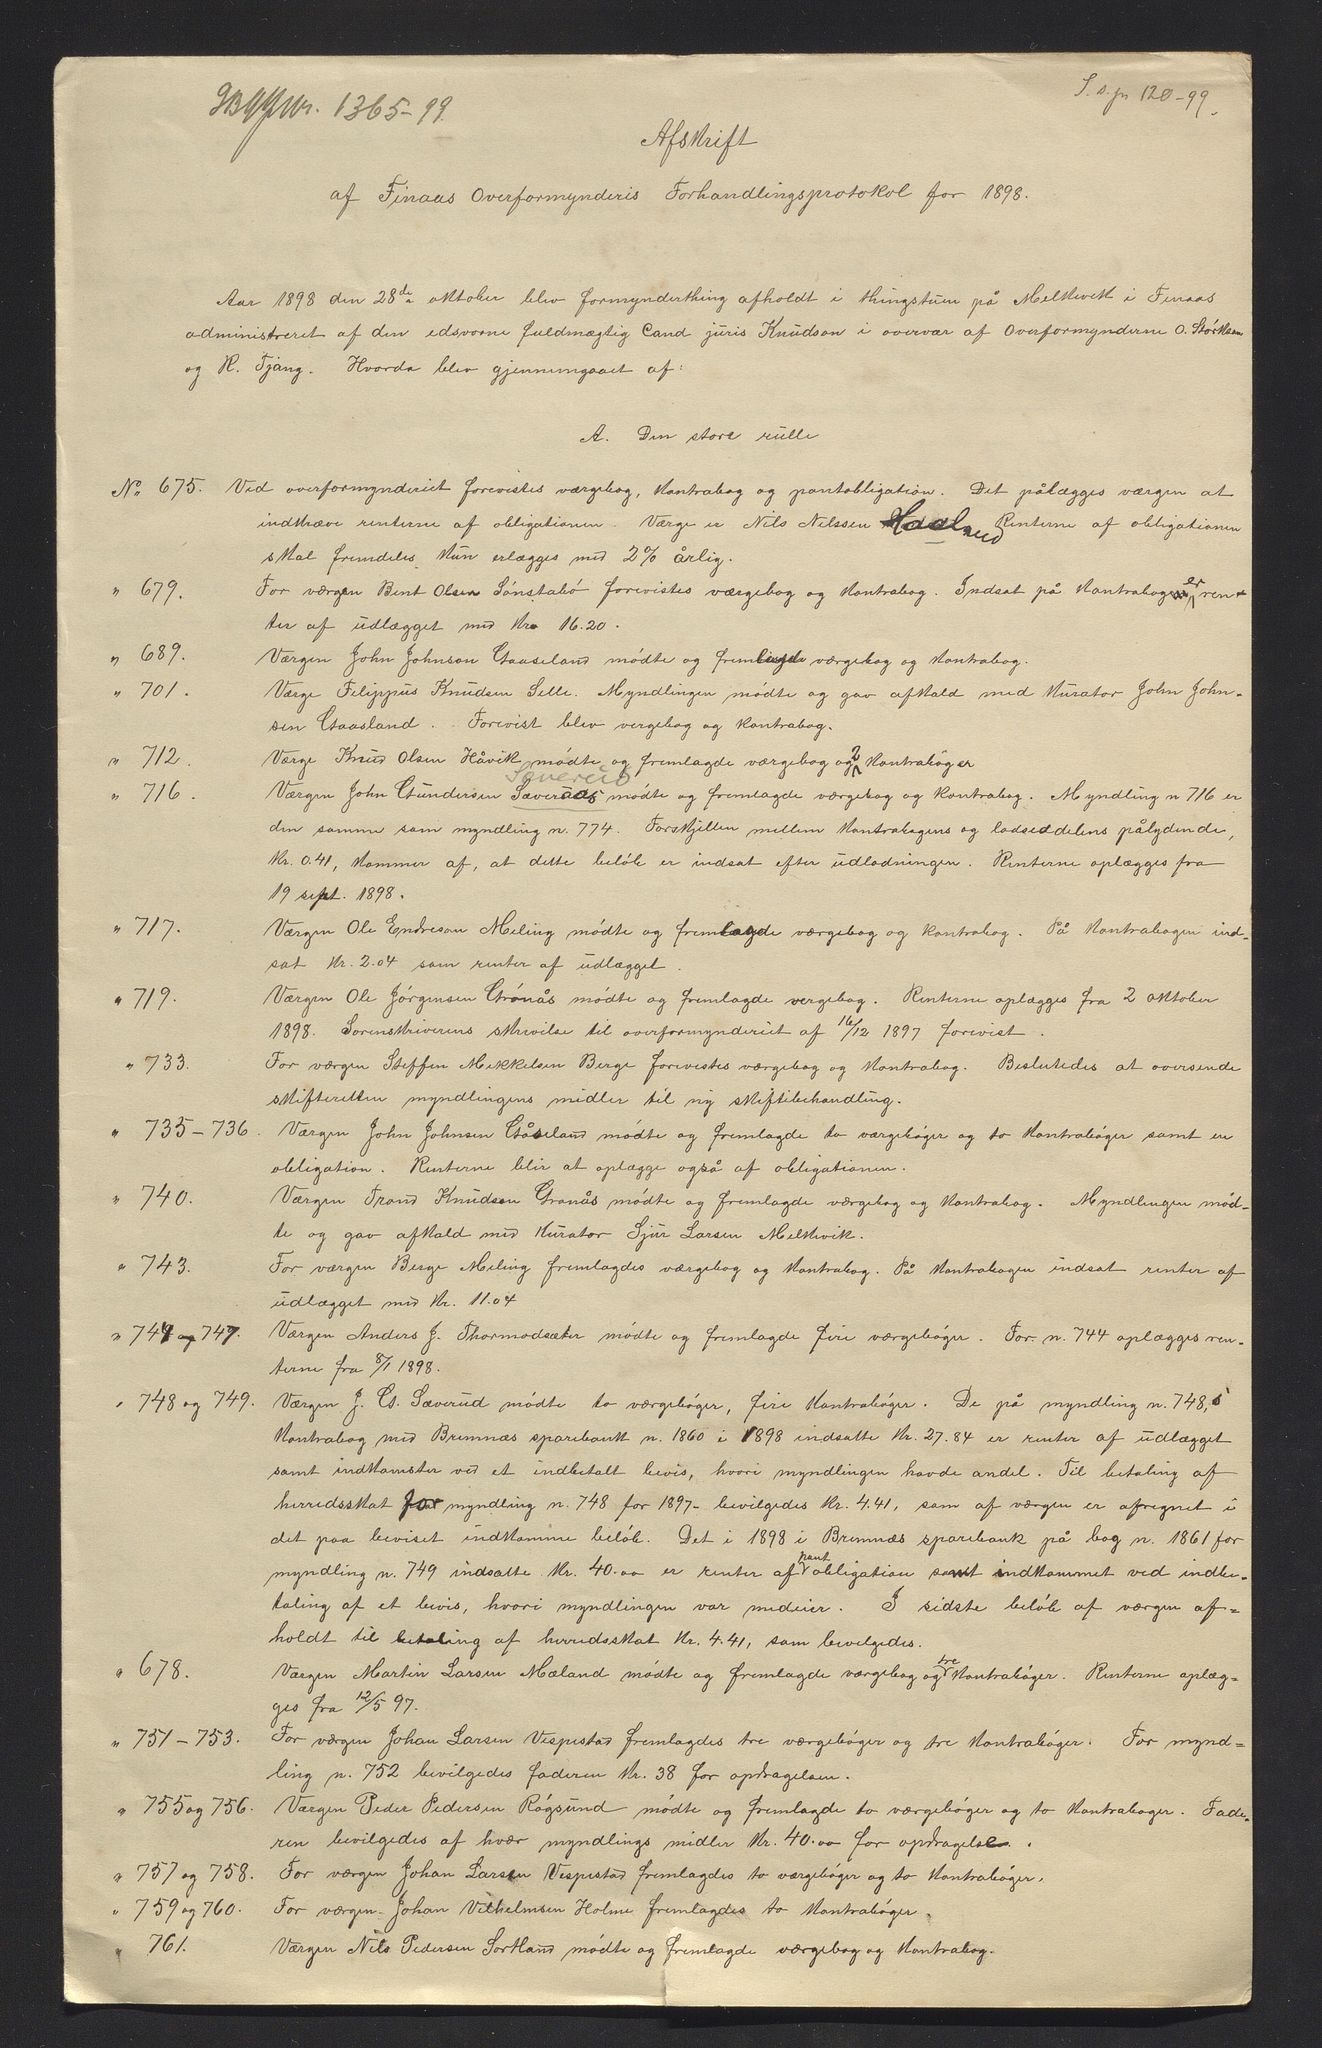 S. s. jr 120-99.
1365-99
Afskrift
af Finaas Overformynderis Forhandlingsprotokol for 1898.
Aar 1898 den 28de oktober blev formynderthing afholdt i thingstuen på Melkevik i Finaas
administreret af den edsvorne fuldmægtig Cand juris Knudson i overvær af Overformynderne O. Störksen
og K. Tjang. Hvorda blev gjennemgaaet af:
A. Den store rulle
No 675. Ved overformynderiet forevistes værgebog, kontrabog og pantobligation. Det pålægges værgen at
indkræve renterne af obligationen. Værge er Nils Nilssen Haaland Renterne af obligationen
skal fremdeles kun erlægges med 2% årlig.
" 679. For værgen Bent Olsen Sönstabö forevistes værgebog og kontrabog. Indsat på kontrabogen er ren-
ter af udlægget med Kr. 16.20.
" 689. Værgen John Johnson Gaaseland mödte og fremlagde værgebog og kontrabog.
" 701. Værge Filippus Knudsen Selle. Myndlingen mödte og gav afkald med kurator John John-
sen Gaasland. Forevist blev vergebog og kontrabog.
" 712. Værge Knud Olsen Håvik mödte og fremlagde værgebog og 2 kontrabøger
Sævereid
" 716. Værgen John Gundersen Sæveraas mödte og fremlagde værgebog og kontrabog. Myndling n 716 er
den samme som myndling n. 774. Forskjellen mellem kontrabogens og lodseddelens pålydende,
Kr. 0.41, kommer af, at dette belöb er indsat efter udlodningen. Renterne oplægges fra
19 sept. 1898.
" 717. Værgen Ole Endreson Meling mödte og fremlagde værgebog og kontrabog. På kontrabogen ind-
sat Kr. 2.04 som renter af udlægget.
" 719. Værgen Ole Jörgensen Grönås mödte og fremlagde vergebog. Renterne oplægges fra 2 oktober
1898. Sorenskriverens skrivelse til overformynderiet af 16/12 1897 forevist.
" 733. For værgen Steffen Mekkelsen Berge forevistes værgebog og kontrabog. Besluttedes at oversende
skifteretten myndlingens midler til ny skiftebehandling.
" 735-736. Værgen John Johnsen Gåseland mödte og fremlagde to værgeböger og to kontraböger samt en
obligation. Renterne blir at oplægge også af obligationen.
" 740. Værgen Trond Knudsen Gronås mödte og fremlagde værgebog og kontrabog. Myndlingen möd-
te og gav afkald med kurator Sjur Larsen Melkevik.
" 743. For værgen Berge Meling fremlagdes værgebog og kontrabog. På kontrabogen indsat renter af
udlægget med Kr. 11.04
" 744 og 747. Værgen Anders J. Thormodsæter mödte og fremlagde fire værgebøger. For n. 744 oplægges ren-
terne fra 8/1 1898.
" 748 og 749. Værgen J. G. Sæverud mödte to værgebøger, fire kontraböger. De på myndling n. 748,s
kontrabog med Bremnæs sparebank n. 1860 i 1898 indsatte Kr. 27.84 er renter af udlægget
samt indkomster ved et indbetalt bevis, hvori myndlingen havde andel. Til betaling af
herredsskat for myndling n. 748 for 1897- bevilgedes Kr. 4.41, som af værgen er afregnet i
det paa beviset indkomme belöb. Det i 1898 i Bremnæs sparebank på bog n. 1861 for
myndling n. 749 indsatte Kr. 40.00 er renter af pant obligation samt indkommet ved indbe-
taling af et bevis, hvori myndlingen var medeier. I sidste belöb af værgen af-
holdt til betaling af herredsskat Kr. 4.41, som bevilgedes.
" 678. Værgen Martin Larsen Mæland mödte og fremlagde værgebog og tre kontraböger. Renterne oplæg-
ges fra 12/5 97.
" 751-753. For værgen Johan Larsen Vespestad fremlagdes tre værgebøger og tre kontraböger. For mynd-
ling n. 752 bevilgedes faderen Kr. 38 for opdragelsen.
" 755 og 756. Værgen Peder Pedersen Rögsund mödte og fremlagde to værgebøger og to kontraboger. Fade-
ren bevilgedes af hvær myndlings midler Kr. 40.00 for opdragelse.
" 757 og 758. For værgen Johan Larsen Vespestad fremlagdes to værgebøger og to kontraböger.
" 759 og 760. For værgen Johan Vilhelmsen Holme fremlagdes to kontraböger.
" 761. Værgen Nils Pedersen Sortland mödte og fremlagde værgebog og kontrabog.